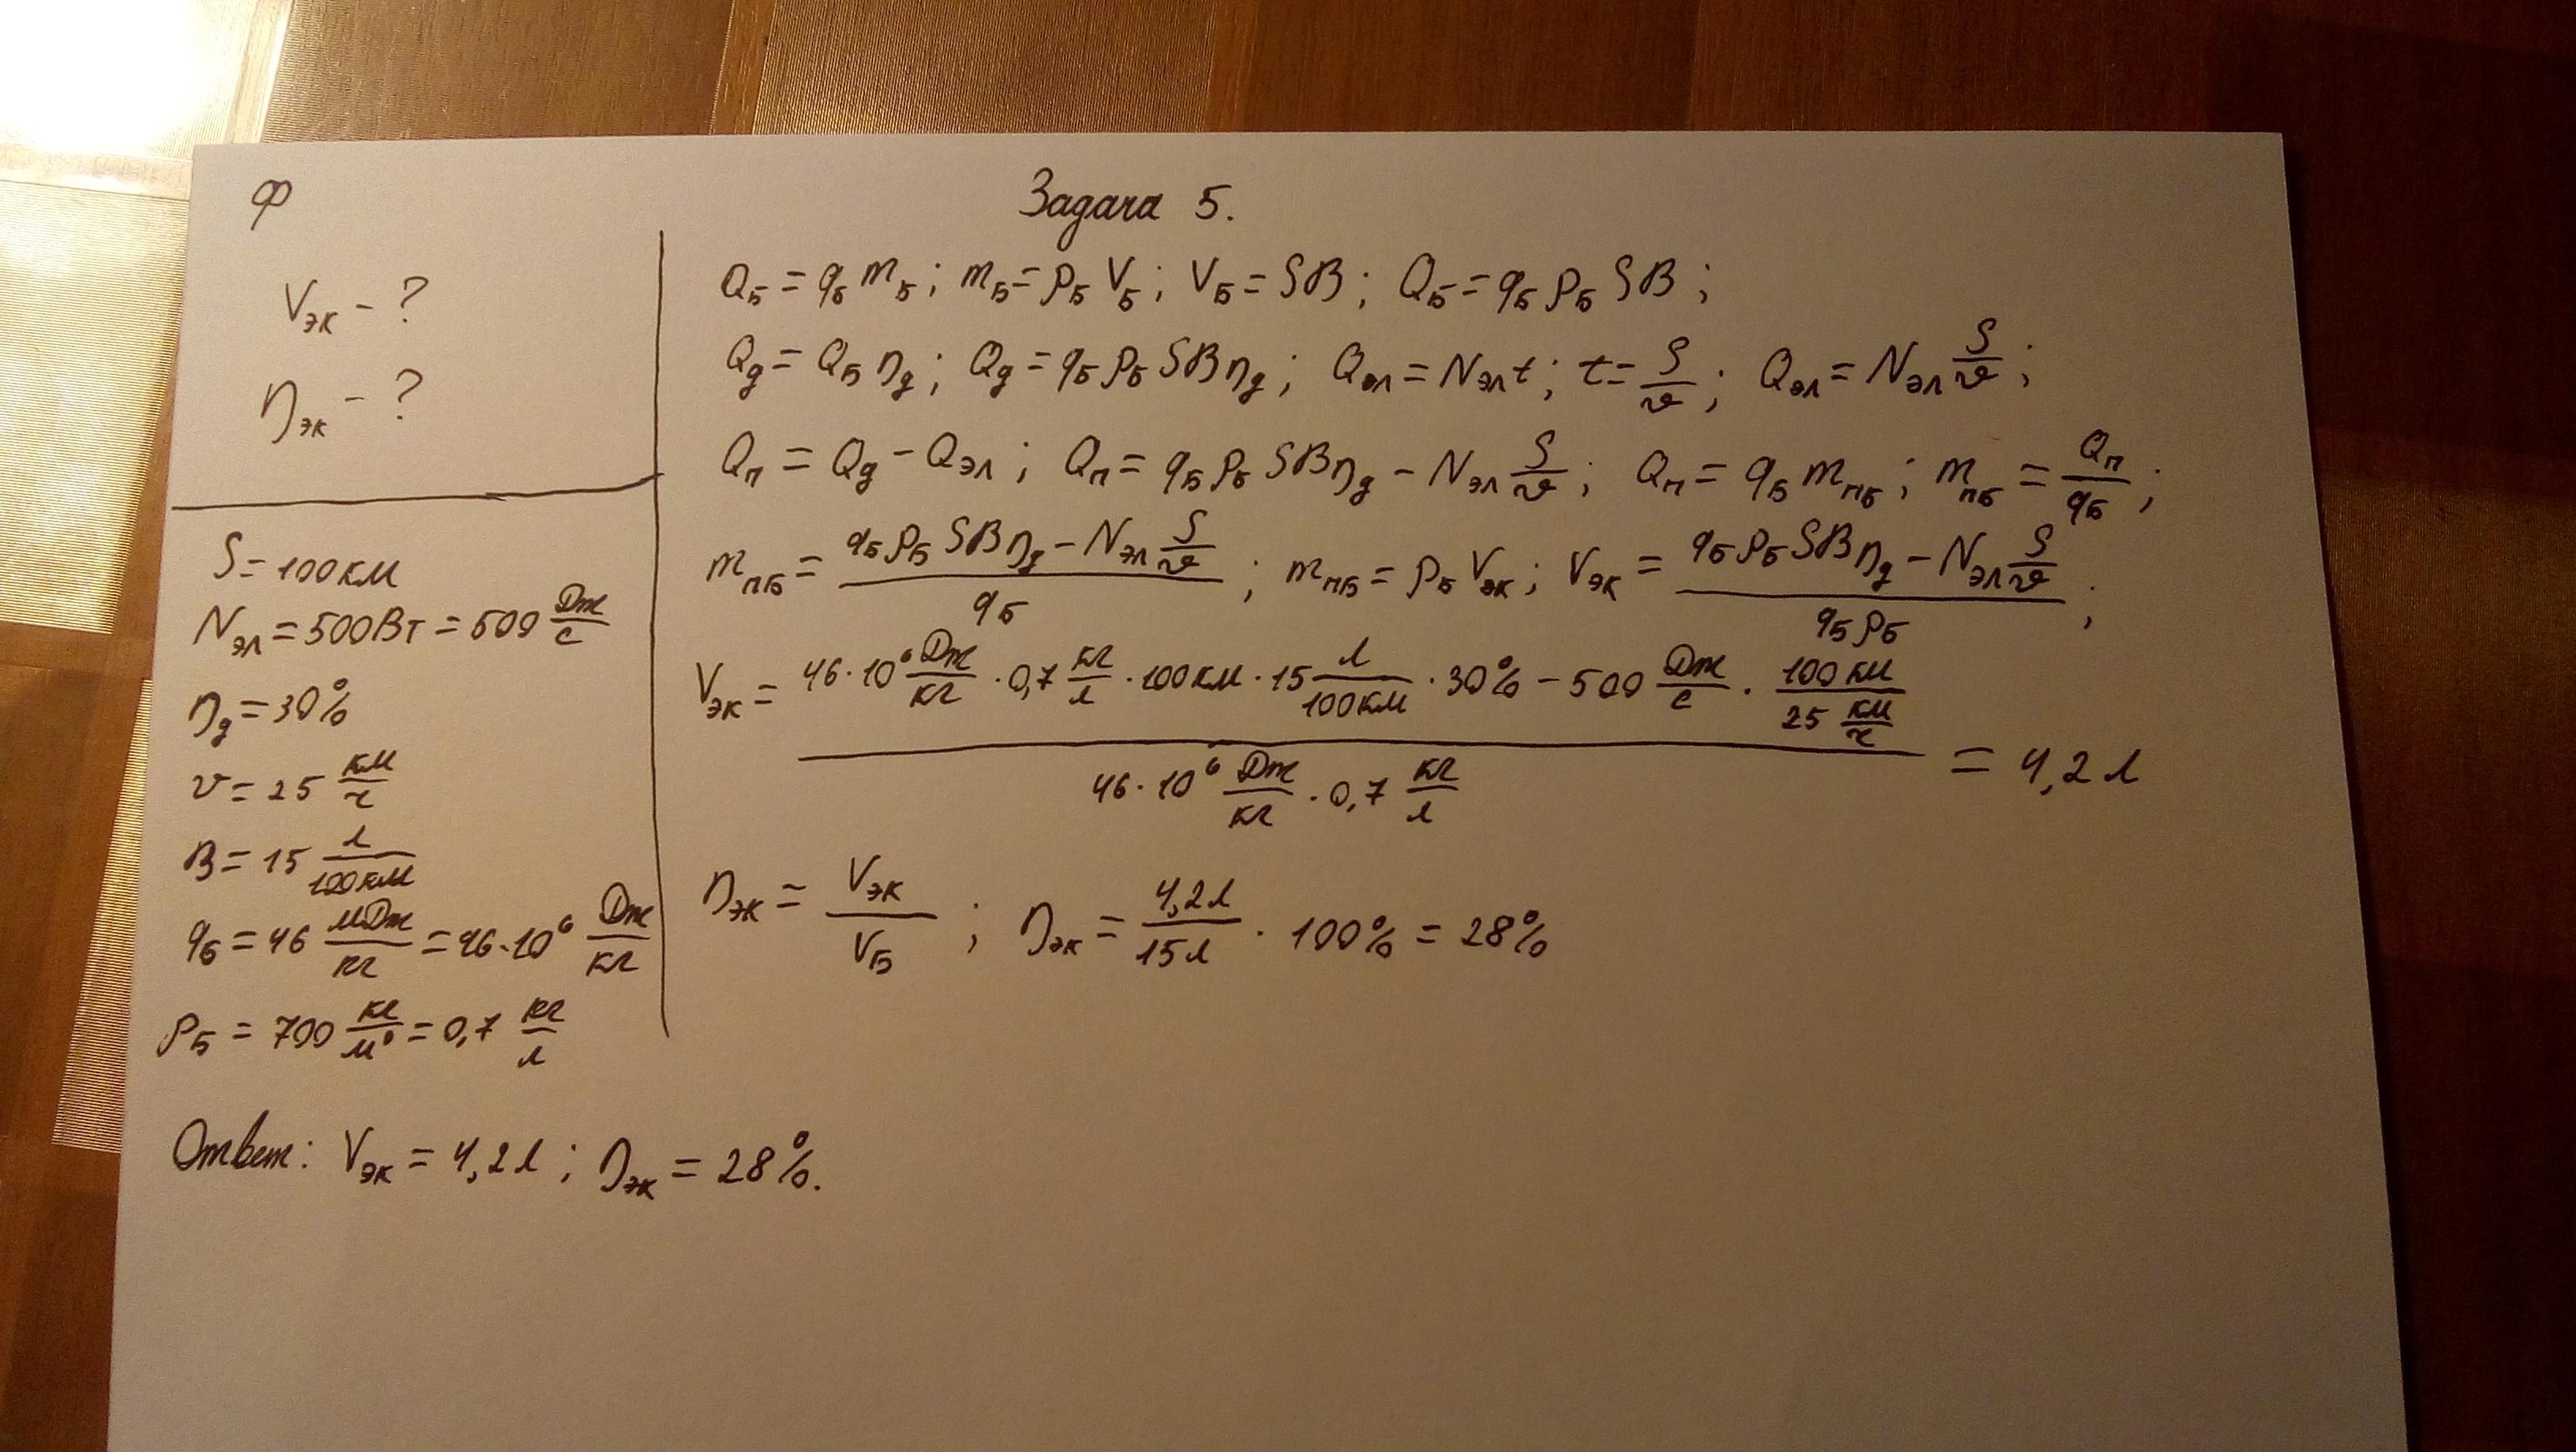 Ф
Задача 5.
Vэк - ?
ηэк - ?
S = 100 км
Nэл = 500 Вт = 500 Дж/с
ηд = 30%
v = 25 км/ч
B = 15 л/100 км
qБ = 46 МДж/кг = 46·10⁶ Дж/кг
ρБ = 700 кг/м³ = 0,7 кг/л
QБ = qБ mБ; mБ = ρБ VБ; VБ = SB; QБ = qБ ρБ SB;
Qд = QБ ηд; Qд = qБ ρБ SB ηд; Qэл = Nэл t; t = S/v; Qэл = Nэл S/v;
Qп = Qд - Qэл; Qп = qБ ρБ SB ηд - Nэл S/v; Qп = qБ mпБ; mпБ = Qп/qБ;
mпБ = (qБ ρБ SB ηд - Nэл S/v)/qБ; mпБ = ρБ Vэк; Vэк = (qБ ρБ SB ηд - Nэл S/v)/(qБ ρБ);
Vэк = (46·10⁶ Дж/кг · 0,7 кг/л · 100 км · 15 л/100 км · 30% - 500 Дж/с · 100 км/(25 км/ч))/(46·10⁶ Дж/кг · 0,7 кг/л) = 4,2 л
ηэк = Vэк/VБ; ηэк = 4,2 л/15 л · 100% = 28%
Ответ: Vэк = 4,2 л; ηэк = 28%.